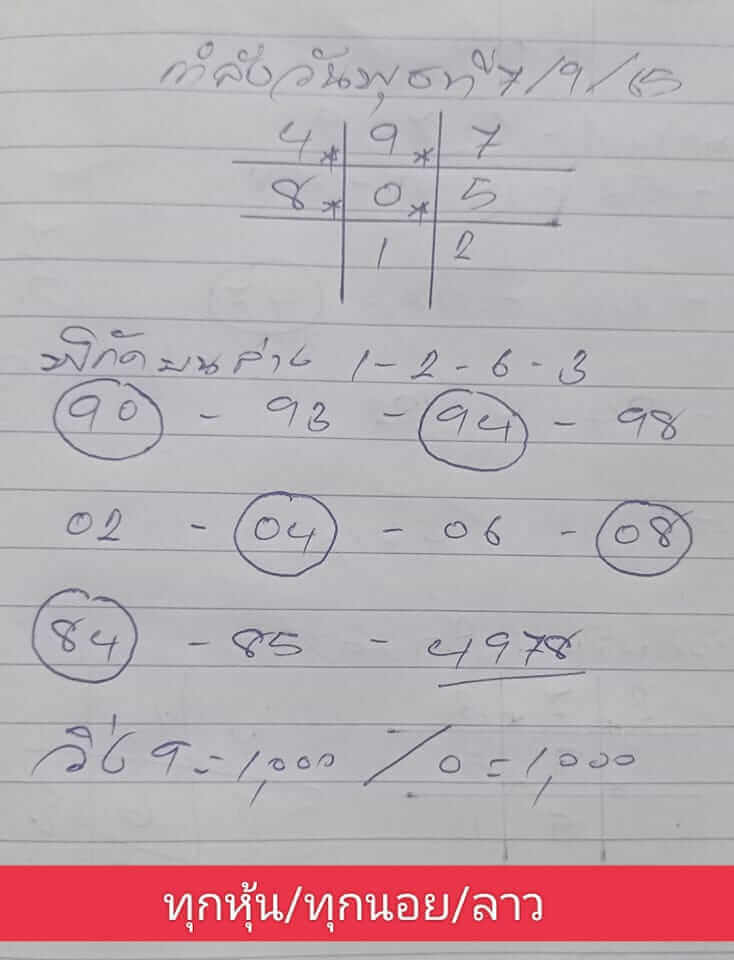 กำลังวันพุธที่ 7/9/65
4* 9* 7
8* 0* 5
1 2
พิกัดบนล่าง 1-2-6-3
90 - 93 - 94 - 98
02 - 04 - 06 - 08
84 - 85 - 4978
วิ่ง 9=1,000 / 0=1,000
ทุกหุ้น/ทุกนอย/ลาว